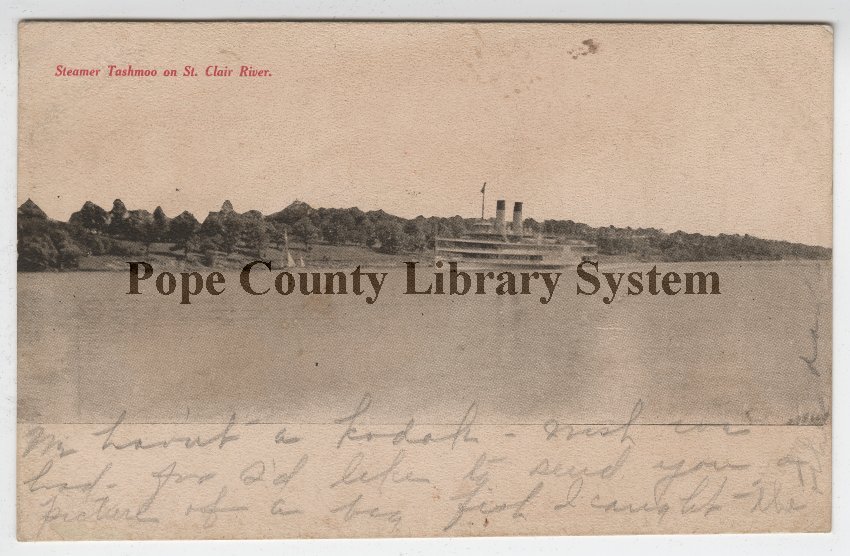 Steamer Tashmoo on St. Clair River.
Pope County Library System
haven't a kodak - wish we
had - for I'd like to send you a
picture of a big fish I caught the
day